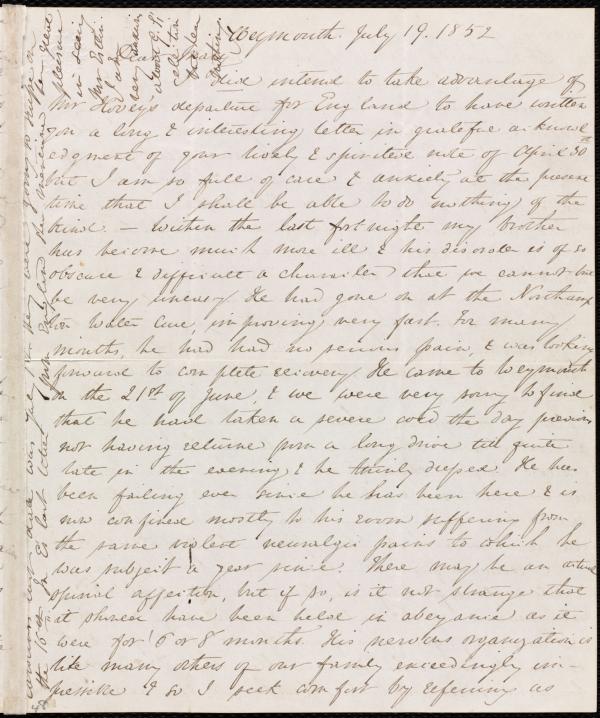 Weymouth July 19. 1852
Dear
I did intend to take advantage of
Mr Hovey's departure for England to have written
you a long & interesting letter in grateful acknowl
edgment of your lively & spirited note of April 30th
but I am so full of care & anxiety at the present
time that I shall be able to do nothing of the
kind. — Within the last fortnight my brother
has become much more ill & his disorder is of so
obscure & difficult a character that we cannot but
be very uneasy. He had gone on at the Northamp
ton Water Cure, improving very fast. For many
months, he had had no serious pain, & was looking
forward to complete recovery. He came to Weymouth
on the 21st of June, & we were very sorry to find
that he had taken a severe cold the day previous
not having returned from a long drive till quite
late in the evening & he thinly dressed. He has
been failing ever since he has been here & is
now confined mostly to his room suffering from
the same violent neuralgic pains to which he
was subject a year since. There may be an actual
spinal affection, but if so, is it not strange that
it should have been held in abeyance as it
were for 6 or 8 months. His nervous organization is
like many others of our family exceedingly im-
pressible & so I seek comfort by referring as